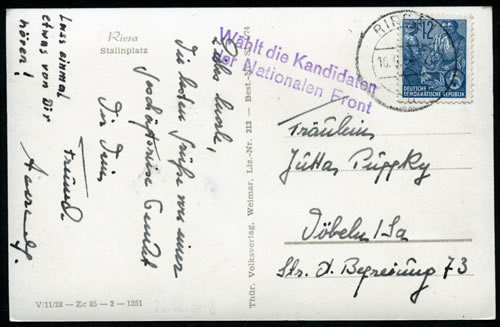 Riesa
Stalinplatz
Wählt die Kandidaten
der Nationalen Front
DEUTSCHE
DEMOKRATISCHE REPUBLIK
5
12
Lass einmal
etwas von Dir
hören!
Die besten Grüße von einer
Dir Dein
Freund
Fräulein
Jutta Püppky
Döbeln/Sa
Str. d. Befreiung 73
Thür. Volksverlag, Weimar, Liz.-Nr. 313 — Best.-Nr.
V/11/28 — Ze 85 — 2 — 1251